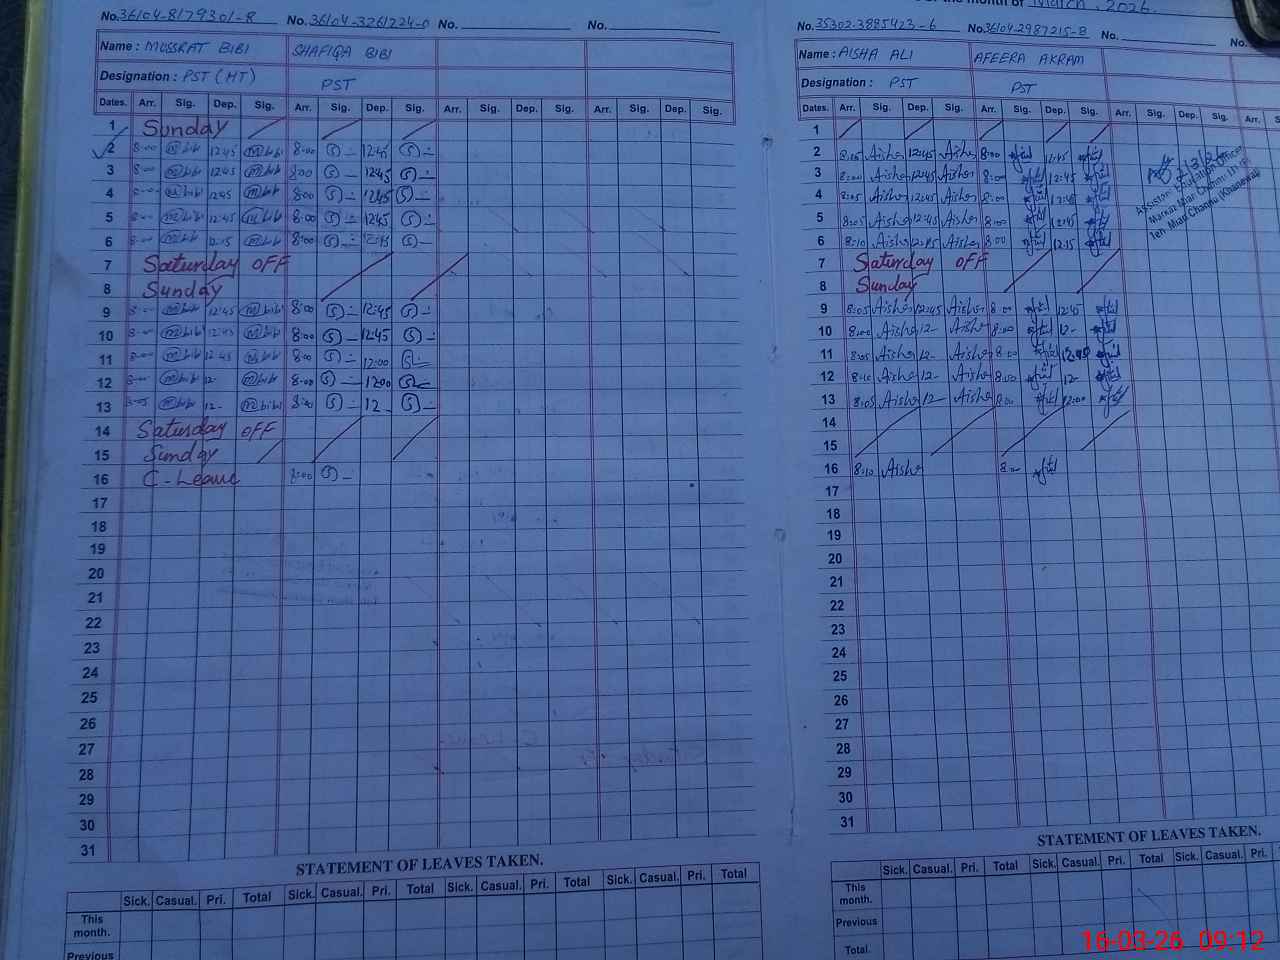 No. 36104-8179301-8 No. 36104-3261224-0 No. No.
Name : MUSSRAT BIBI SHAFIQA BIBI
Designation : PST (HT) PST
Dates. Arr. Sig. Dep. Sig. Arr. Sig. Dep. Sig. Arr. Sig. Dep. Sig. Arr. Sig. Dep. Sig.
1 Sunday
2 8-00 bibi 12:45 bibi 8:00 S 12:45 S
3 8-00 bibi 12:45 bibi 8:00 S 12:45 S
4 8-00 bibi 12:45 bibi 8:00 S 12:45 S
5 8-00 bibi 12:45 bibi 8:00 S 12:45 S
6 8-00 bibi 12:15 bibi 8:00 S S
7 Saturday OFF
8 Sunday
9 8-00 bibi 12:45 bibi 8:00 S 12:45 S
10 8-00 bibi 12:45 bibi 8:00 S 12:45 S
11 8-00 bibi 12:45 bibi 8:00 S 12:00 S
12 8-00 bibi 12- bibi 8:00 S 12:00 S
13 bibi 12- bibi 8:00 S 12 S
14 Saturday OFF
15 Sunday
16 C-Leave 8:00 S
17
18
19
20
21
22
23
24
25
26
27
28
29
30
31
STATEMENT OF LEAVES TAKEN.
Sick. Casual. Pri. Total Sick. Casual. Pri. Total Sick. Casual. Pri. Total Sick. Casual. Pri. Total
This month.
Previous
the month of March, 2026.
No. 35302-3885423-6 No. 36104-2987215-8 No. No.
Name : AISHA ALI AFEERA AKRAM
Designation : PST PST
Dates. Arr. Sig. Dep. Sig. Arr. Sig. Dep. Sig. Arr. Sig. Dep. Sig. Arr. S
1
2 8:05 Aisha 12:45 Aisha 8:00 12:45
3 8:00 Aisha 12:45 Aisha 8:00 12:45
4 8:05 Aisha 12:45 Aisha 8:00 12:45
5 8:05 Aisha 12:45 Aisha 8:00 12:45
6 8:10 Aisha 12:15 Aisha 8:00 12:15
7 Saturday OFF
8 Sunday
9 8:05 Aisha 12:45 Aisha 8:00 12:45
10 8:00 Aisha 12- Aisha 8:00 12-
11 8:05 Aisha 12- Aisha 8:00
12 8:10 Aisha 12- Aisha 8:00 12-
13 8:05 Aisha 12- Aisha 8:00 12:00
14
15
16 8:10 Aisha 8:00
17
18
19
20
21
22
23
24
25
26
27
28
29
30
31
Assistant Education Officer
Markaz Mian Channu
Teh. Mian Channu (Khanewal)
STATEMENT OF LEAVES TAKEN.
Sick. Casual. Pri. Total Sick. Casual. Pri. Total Sick. Casual. Pri.
This month.
Previous
Total.
16-03-26 09:12